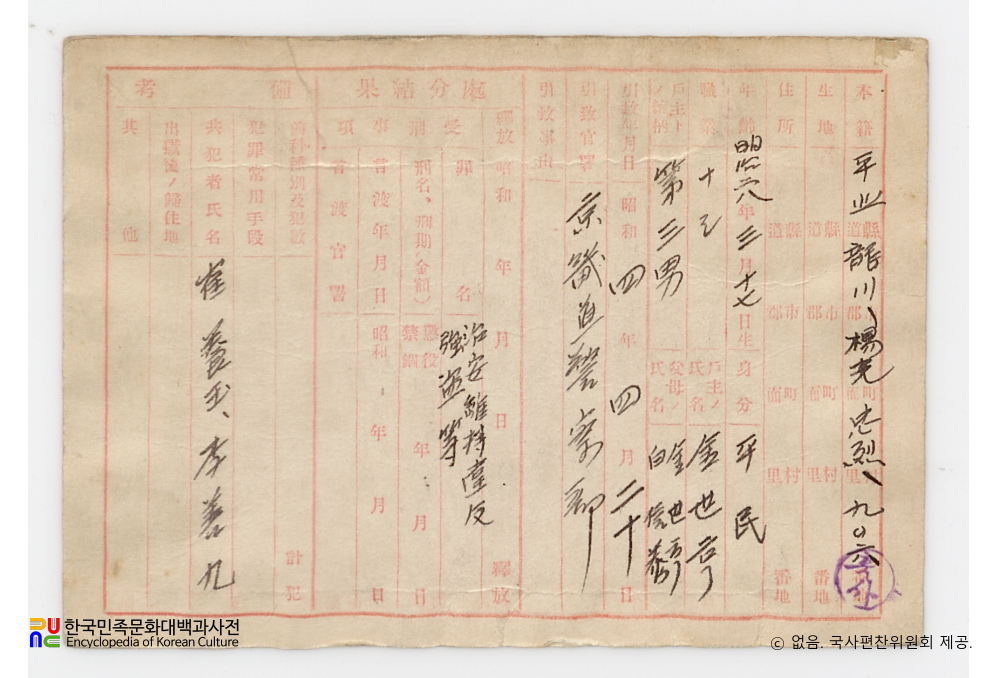 本籍 平北 道縣 龍川 郡市 楊光 面町 忠烈 里村 九〇六 番地
生地 道縣 郡市 面町 里村 番地
住所 道縣 郡市 面町 里村 番地
年齡 明治 年 三 月 十七 日生 身分 平民
職業 戶主ノ氏名 金世
戶主トノ續柄 第三男 父母ノ氏名 金世 白信
引致年月日 昭和 四 年 四 月 二十 日
引致官署 京畿道警察部
引致事由
處分結果
釋放 昭和 年 月 日 釋放
受
罪名 治安維持違反
强盗等
刑
刑名、刑期(金額) 懲役 禁錮 年 月 日
事
言渡年月日 昭和 年 月 日
項
言渡官署
備考
前科種別及犯數 計 犯
犯罪常用手段
共犯者氏名 崔養玉、李善九
出獄後ノ歸住地
其他
한국민족문화대백과사전
Encyclopedia of Korean Culture
© 없음. 국사편찬위원회 제공.